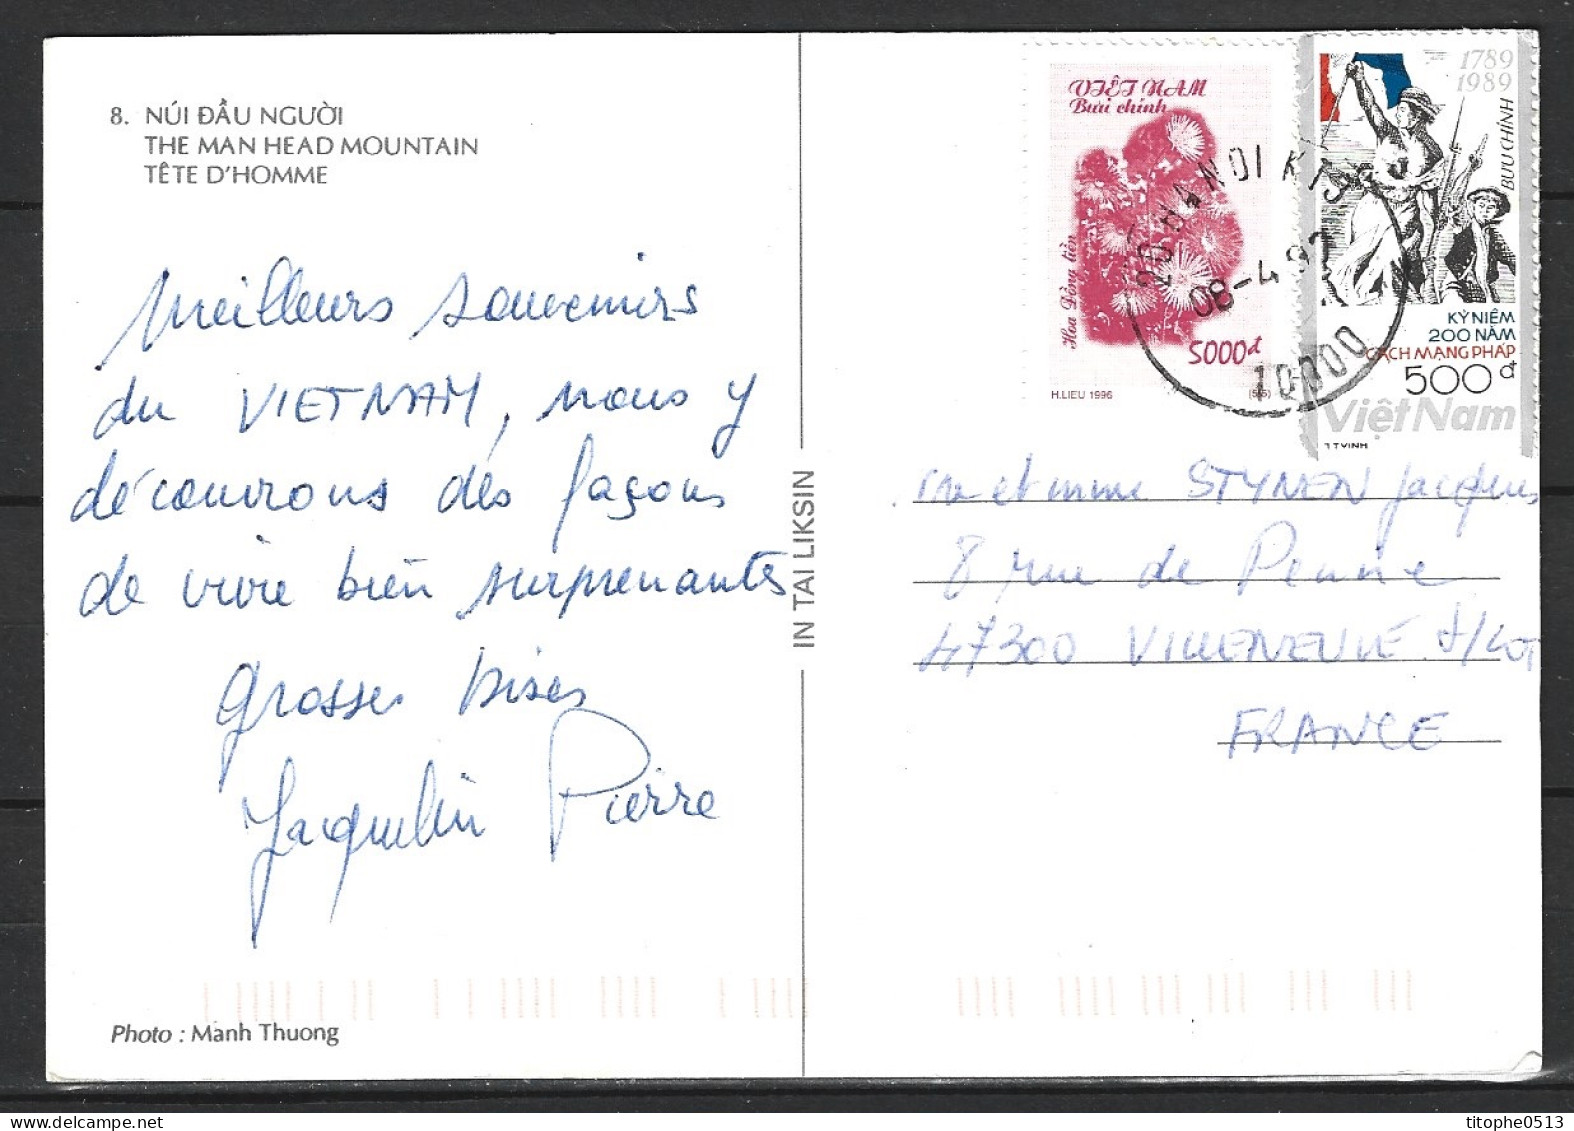 8. NÚI ĐẦU NGƯỜI
THE MAN HEAD MOUNTAIN
TÊTE D'HOMME
Meilleurs souvenirs
du VIETNAM, nous y
découvrons des façons
de vivre bien surprenantes
Grosses bises
Jacquelin Pierre
Photo : Manh Thuong
IN TAI LIKSIN
VIỆT NAM
Bưu chính
Hoa Đồng tiền
5000đ
H.LIEU 1996
(5x5)
1789
1989
BƯU CHÍNH
KỶ NIỆM
200 NĂM
CÁCH MẠNG PHÁP
500đ
Việt Nam
HANOI KT
08-4
10000
et mme STYNEN Jacques
8 rue de Penne
47300 VILLENEUVE S/LOT
FRANCE
titophe0513